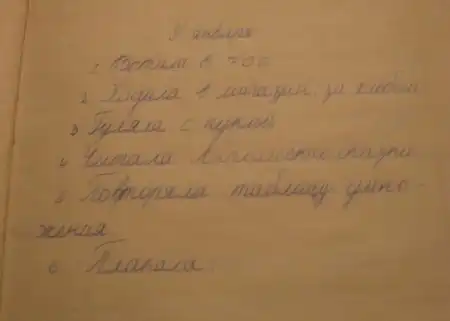 9 января
1 Встала в 7 00
2 Ходила в магазин за хлебом
3 Гуляла с куклой
4 Читала сказки
5 Повторяла таблицу умно-
жения
6 Плакала